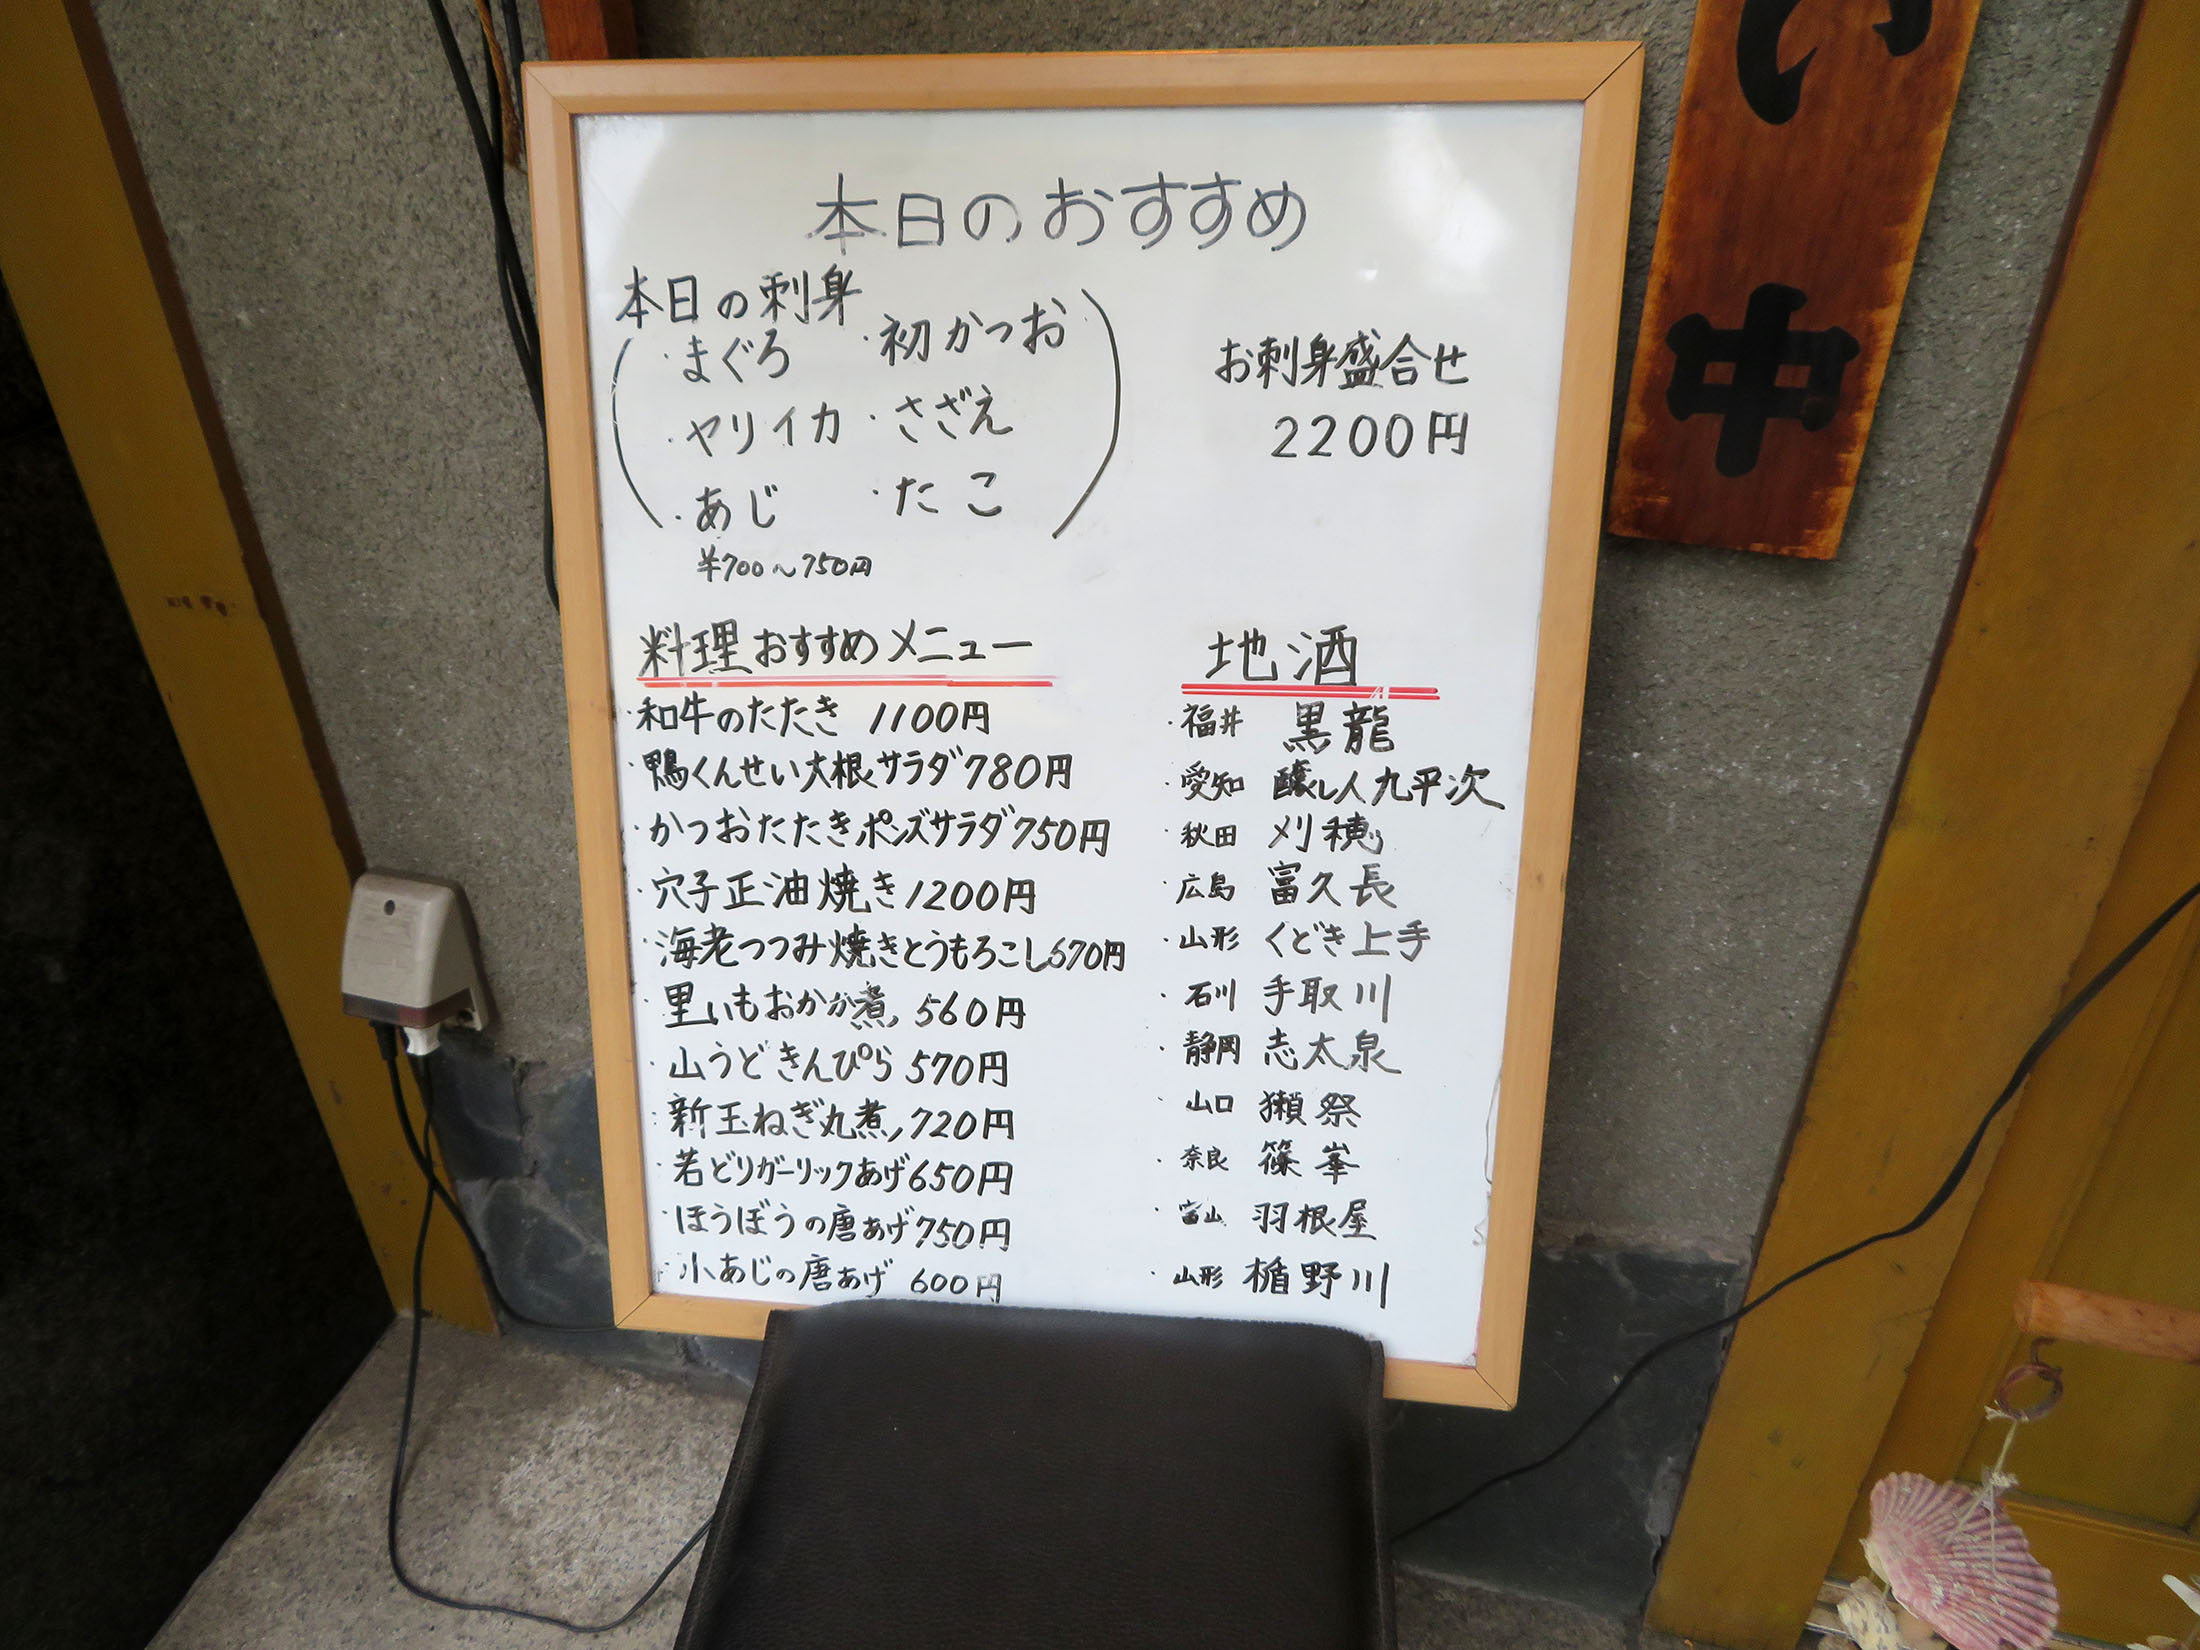 本日のおすすめ
本日の刺身
・まぐろ ・初かつお
・ヤリイカ ・さざえ
・あじ ・たこ
¥700〜750円
お刺身盛合せ
2200円
料理おすすめメニュー
・和牛のたたき 1100円
・鴨くんせい大根サラダ 780円
・かつおたたきポンズサラダ 750円
・穴子正油焼き 1200円
・海老つつみ焼きとうもろこし 670円
・里いもおかか煮 560円
・山うどきんぴら 570円
・新玉ねぎ丸煮 720円
・若どりガーリックあげ 650円
・ほうぼうの唐あげ 750円
・小あじの唐あげ 600円
地酒
・福井 黒龍
・愛知 醸し人九平次
・秋田 刈穂
・広島 富久長
・山形 くどき上手
・石川 手取川
・静岡 志太泉
・山口 獺祭
・奈良 篠峯
・富山 羽根屋
・山形 楯野川
い中